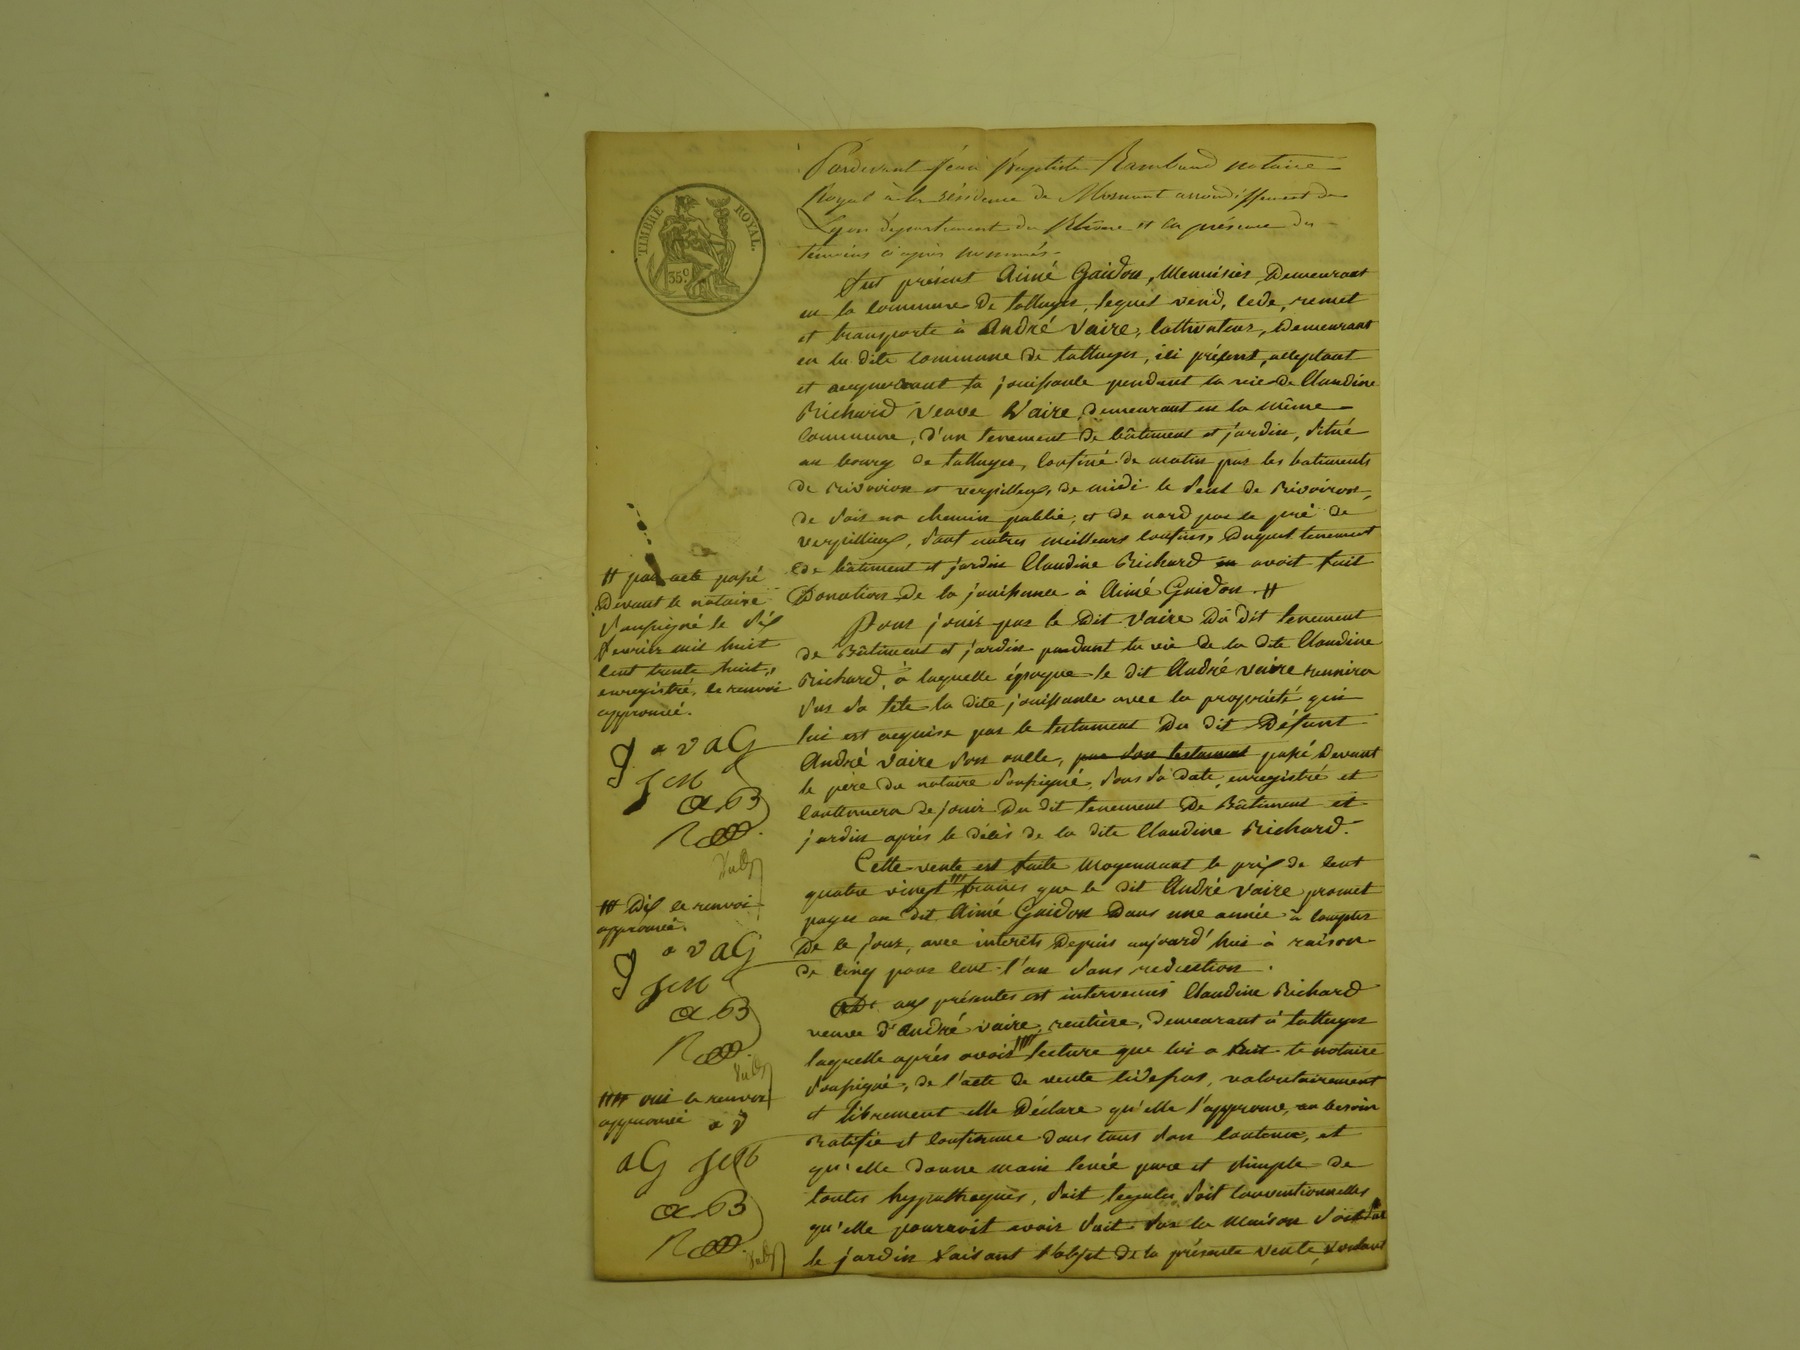 TIMBRE ROYAL.
35 c.
Pardevant Jean Baptiste Rambaud notaire
Royal à la résidence de Mornant arrondissement de
Lyon département du Rhône et en présence des
témoins ci après nommés.
fut présent Aimé Gaidon, Menuisier, Demeurant
en la Commune de talluyer, lequel vend, cede, remet
et transporte à André Vaire, Cultivateur, Demeurant
en la dite Commune de talluyer, ici présent, acceptant
et acquerant la jouissance pendant la vie de Claudine
Richard veuve Vaire, demeurant en la même
Commune, d'un tenement de bâtiment et jardin, situé
au bourg de talluyer, Confiné de matin par les batiments
de rivoiron et verpilleux, de midi le de rivoiron,
de soir un chemin public, et de nord par le pré de
verpillieux, sauf autres meilleurs confins, Duquel tenement
de bâtiment et jardin Claudine Richard avoit fait
Donation de la jouissance à Aimé Gaidon #
# par acte passé
Devant le notaire
soussigné le dix
fevrier mil huit
cent trente huit,
enregistré, le renvoi
approuvé.
a v a G
JCM
a B
Pour jouir par le Dit Vaire Du Dit tenement
de Bâtiment et jardin pendant la vie de la dite Claudine
Richard, à laquelle époque le dit André Vaire reunira
sur sa tête la dite jouissance avec la propriété qui
lui est acquise par le testament Du dit Défunt
André Vaire son oncle, par son testament passé Devant
le père du notaire soussigné, sous sa date, enregistré et
continuera de jouir Du dit tenement De Bâtiment et
jardin après le décès de la dite Claudine Richard.
Cette vente est faite Moyennant le prix de cent
quatre vingt ### francs que le dit André Vaire promet
payer au dit Aimé Gaidon Dans une année à compter
De ce jour, avec intérêts Depuis aujourd'hui à raison
de cinq pour cent l'an sans reduction.
### Dix le renvoi
approuvé.
a v a G
JCM
a B
aux présentes est intervenue Claudine Richard
veuve d'André Vaire, rentière, demeurant à talluyer
laquelle après avoir #### lecture que lui a fait le notaire
soussigné, de l'acte de vente cidessus, volontairement
et librement elle Déclare qu'elle l'approuve, au besoin
Ratifie et Confirme dans tout son Contenu, et
qu'elle donne main levée pure et simple de
toutes hypothèques, soit legales, soit Conventionnelles
qu'elle pourroit avoir soit sur la Maison soit sur
le jardin faisant l'objet de la présente vente, voulant
#### oui le renvoi
approuvé a v
a G JCM
a B